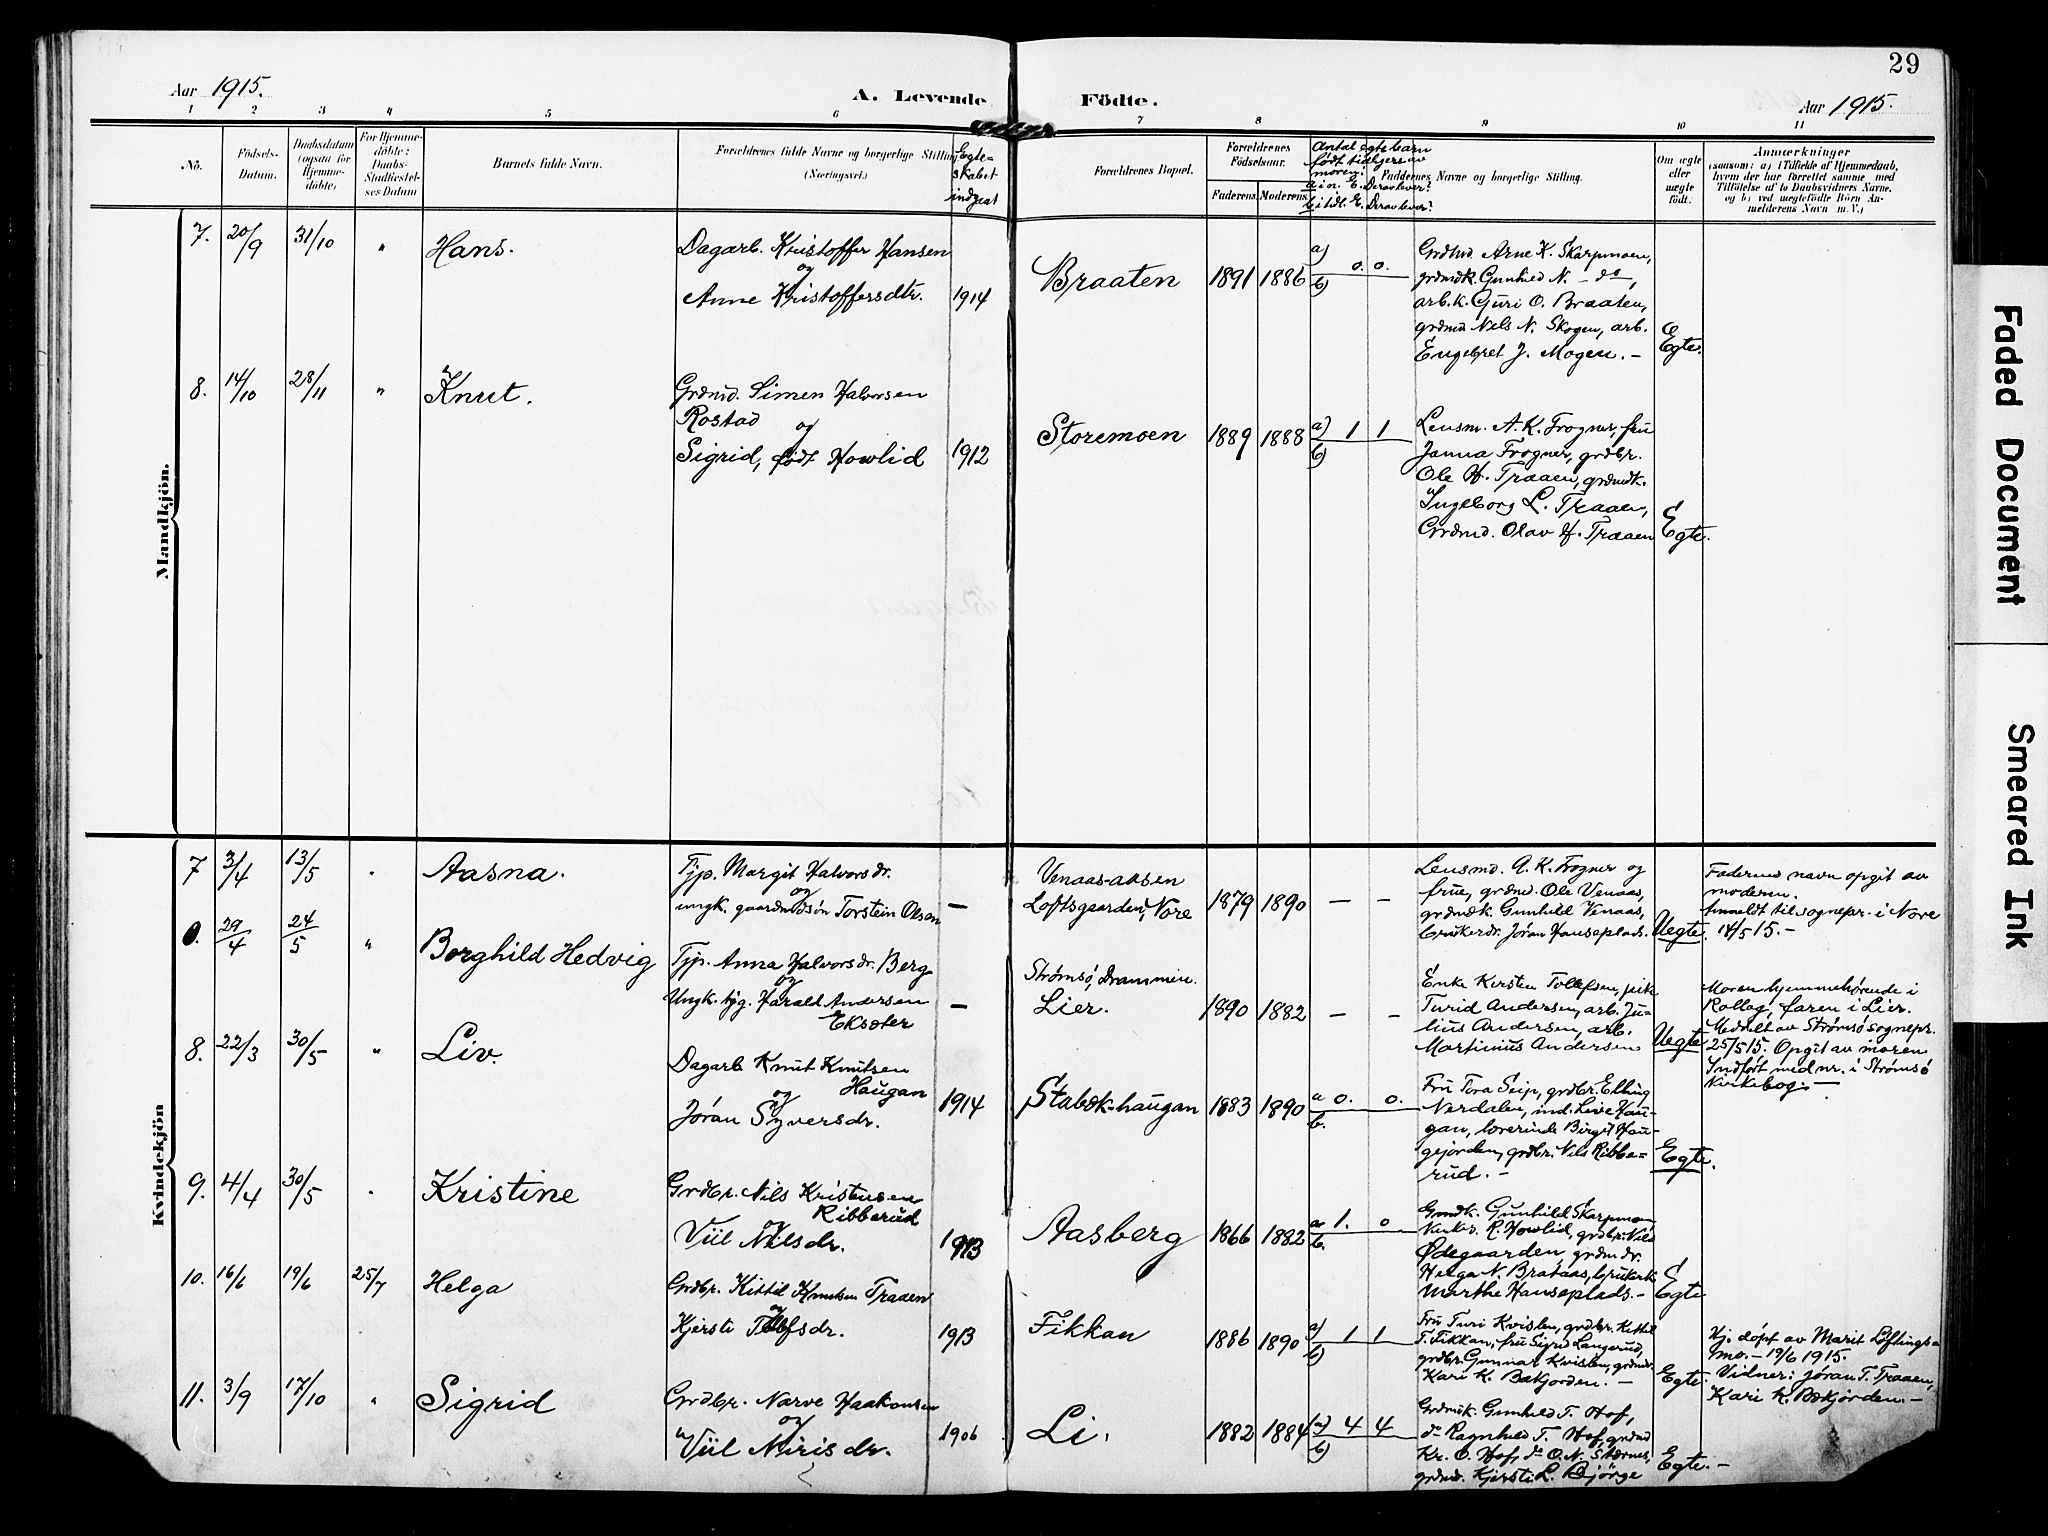 29
Aar 1915.
A. Levende Födte.
Aar 1915.
1 2 3 4 5 6 7 8 9 10 11
No.
Födsels-Datum.
Daabsdatum (ogsaa for Hjemme-döbte)
For Hjemme-döbte: Daabs-Stadfæstel-ses Datum
Barnets fulde Navn.
Forældrenes fulde Navne og borgerlige Stilling
(Næringsvei.)
Egte-skabet indgaat
Forældrenes Bopæl.
Forældrenes Födselsaar.
Faderens. Moderens.
Antal egte barn født tidligere av moren:
a i n. E. Derav lever?
b i tidl. E. Derav lever?
Faddernes Navne og borgerlige Stilling.
Om ægte eller uægte födt.
Anmærkninger
(saasom: a) i Tilfælde af Hjemmedaab,
hvem der har forrettet samme med
Tilföielse af to Daabsvidners Navne,
og b) ved uægtefödte Börn An-
melderens Navn m. V.)
Mandkjön.
7. 20/9 31/10 " Hans.
Dagarb. Kristoffer Hansen
og
Anne Kristoffersdtr. 1914
Braaten 1891 1886 a) 0. 0.
b)
Grdmd Arne K. Skarpmoen,
grdmdk. Gunhild N. - do,
arb.k. Guri O. Braaten,
grdmd Nels N. Skogen, arb.
Engebret J. Mogen. -
Egte.
8. 14/10 28/11 " Knut.
Grdmd. Simen Halvorsen
Rostad
og
Sigrid, født Howlid 1912
Storemoen 1889 1888 a) 1 1
b)
Lensm. A. K. Frogner, fru
Janna Frogner, grdbr.
Ole H. Traaen, grdmdk.
Ingeborg L. Traaen,
Grdmd. Olav H. Traaen
Egte.
Kvindekjön
7 3/4 13/5 " Aasna.
Tjp. Margit Halvorsdr.
og
ungk. gaardmdsøn Torstein Olsen —
Venaas-aasen
Loftsgaarden, Nore 1879 1890 — —
Lensmd. A. K. Frogner og
frue, grdmd. Ole Venaas,
grdmdk. Gunhild Venaas,
brukerdr. Jøran Hanseplads.
Uegte.
Faderens navn opgit av
moderen.
Anmeldt til sognepr. i Nore
14/5 15. -
0. 29/4 24/5 " Borghild Hedvig
Tjp. Anna Halvorsdr. Berg
og
Ungk. Harald Andersen
Eksæter —
Strømsø, Drammen.
Lier. 1890 1882 — —
Enke Kersten Tollefsen, pike
Turid Andersen, arb. Ju-
lius Andersen, arb.
Martinius Andersen
Uegte
Moren hjemmehørende i
Rollag, faren i Lier.
Meddelt av Strømsø sognepr.
25/5 15. Opgit av moren
Indført med nr. i Strømsø
kirkebog. —
8. 22/3 30/5 " Liv.
Dagarb Knut Knutsen
Haugan
og
Jøran Syversdr. 1914
Stabæk-haugan 1883 1890 a 0. 0.
b.
Fru Tora Seip, grdbr. Elling
Nørdalen, ind. Live Hau-
gan, lærerinde Birgit Hau-
gejorden, grdbr. Nils Ribbe-
rud. -
Egte.
9. 4/4 30/5 " Kristine
Grdbr. Nils Kristensen
Ribberud
og
Viil Nilsdr. 1913
Aasberg 1866 1882 a 1. 0
b.
Grmdk. Gunhild Skarpmoen,
R. Howlid, grdbr. Nils
Ødegaarden, grdmdr.
Helga N. Brataas, brukerk.
Marthe Hanseplads. -
Egte
10. 16/6 19/6 25/7 Helga
Grdbr. Kittil Knutsen Traaen
og
Kjersti Tolfsdr. 1913
Fikkan 1886 1890 a) 1 1
b)
Fru Turi Kvislen, grdbr. Kittil
T. Fikkan, fru Sigrid Langerud,
grdbr. Gunnar Kvislen, grdmdr.
Kari K. Bækjorden. -
Egte.
Hj. døpt av Marit Løftings-
mo. - 19/6 1915.
Vidner: Jøran T. Traaen,
Kari K. Bækjorden. -
11. 3/9 17/10 " Sigrid
Grdbr. Narve Haakonsen
og
Viil Nirisdr. 1906
Li. 1882 1884 a) 4 4
b)
Grdmdk. Gunhild T. Hof,
do Ragnhild T. Hof, grdmd
Kr. O. Hof, do O. N. Stærnes,
grdmd. Kjersti L. Bjørge
Egte. -
Faded Document
Smeared Ink